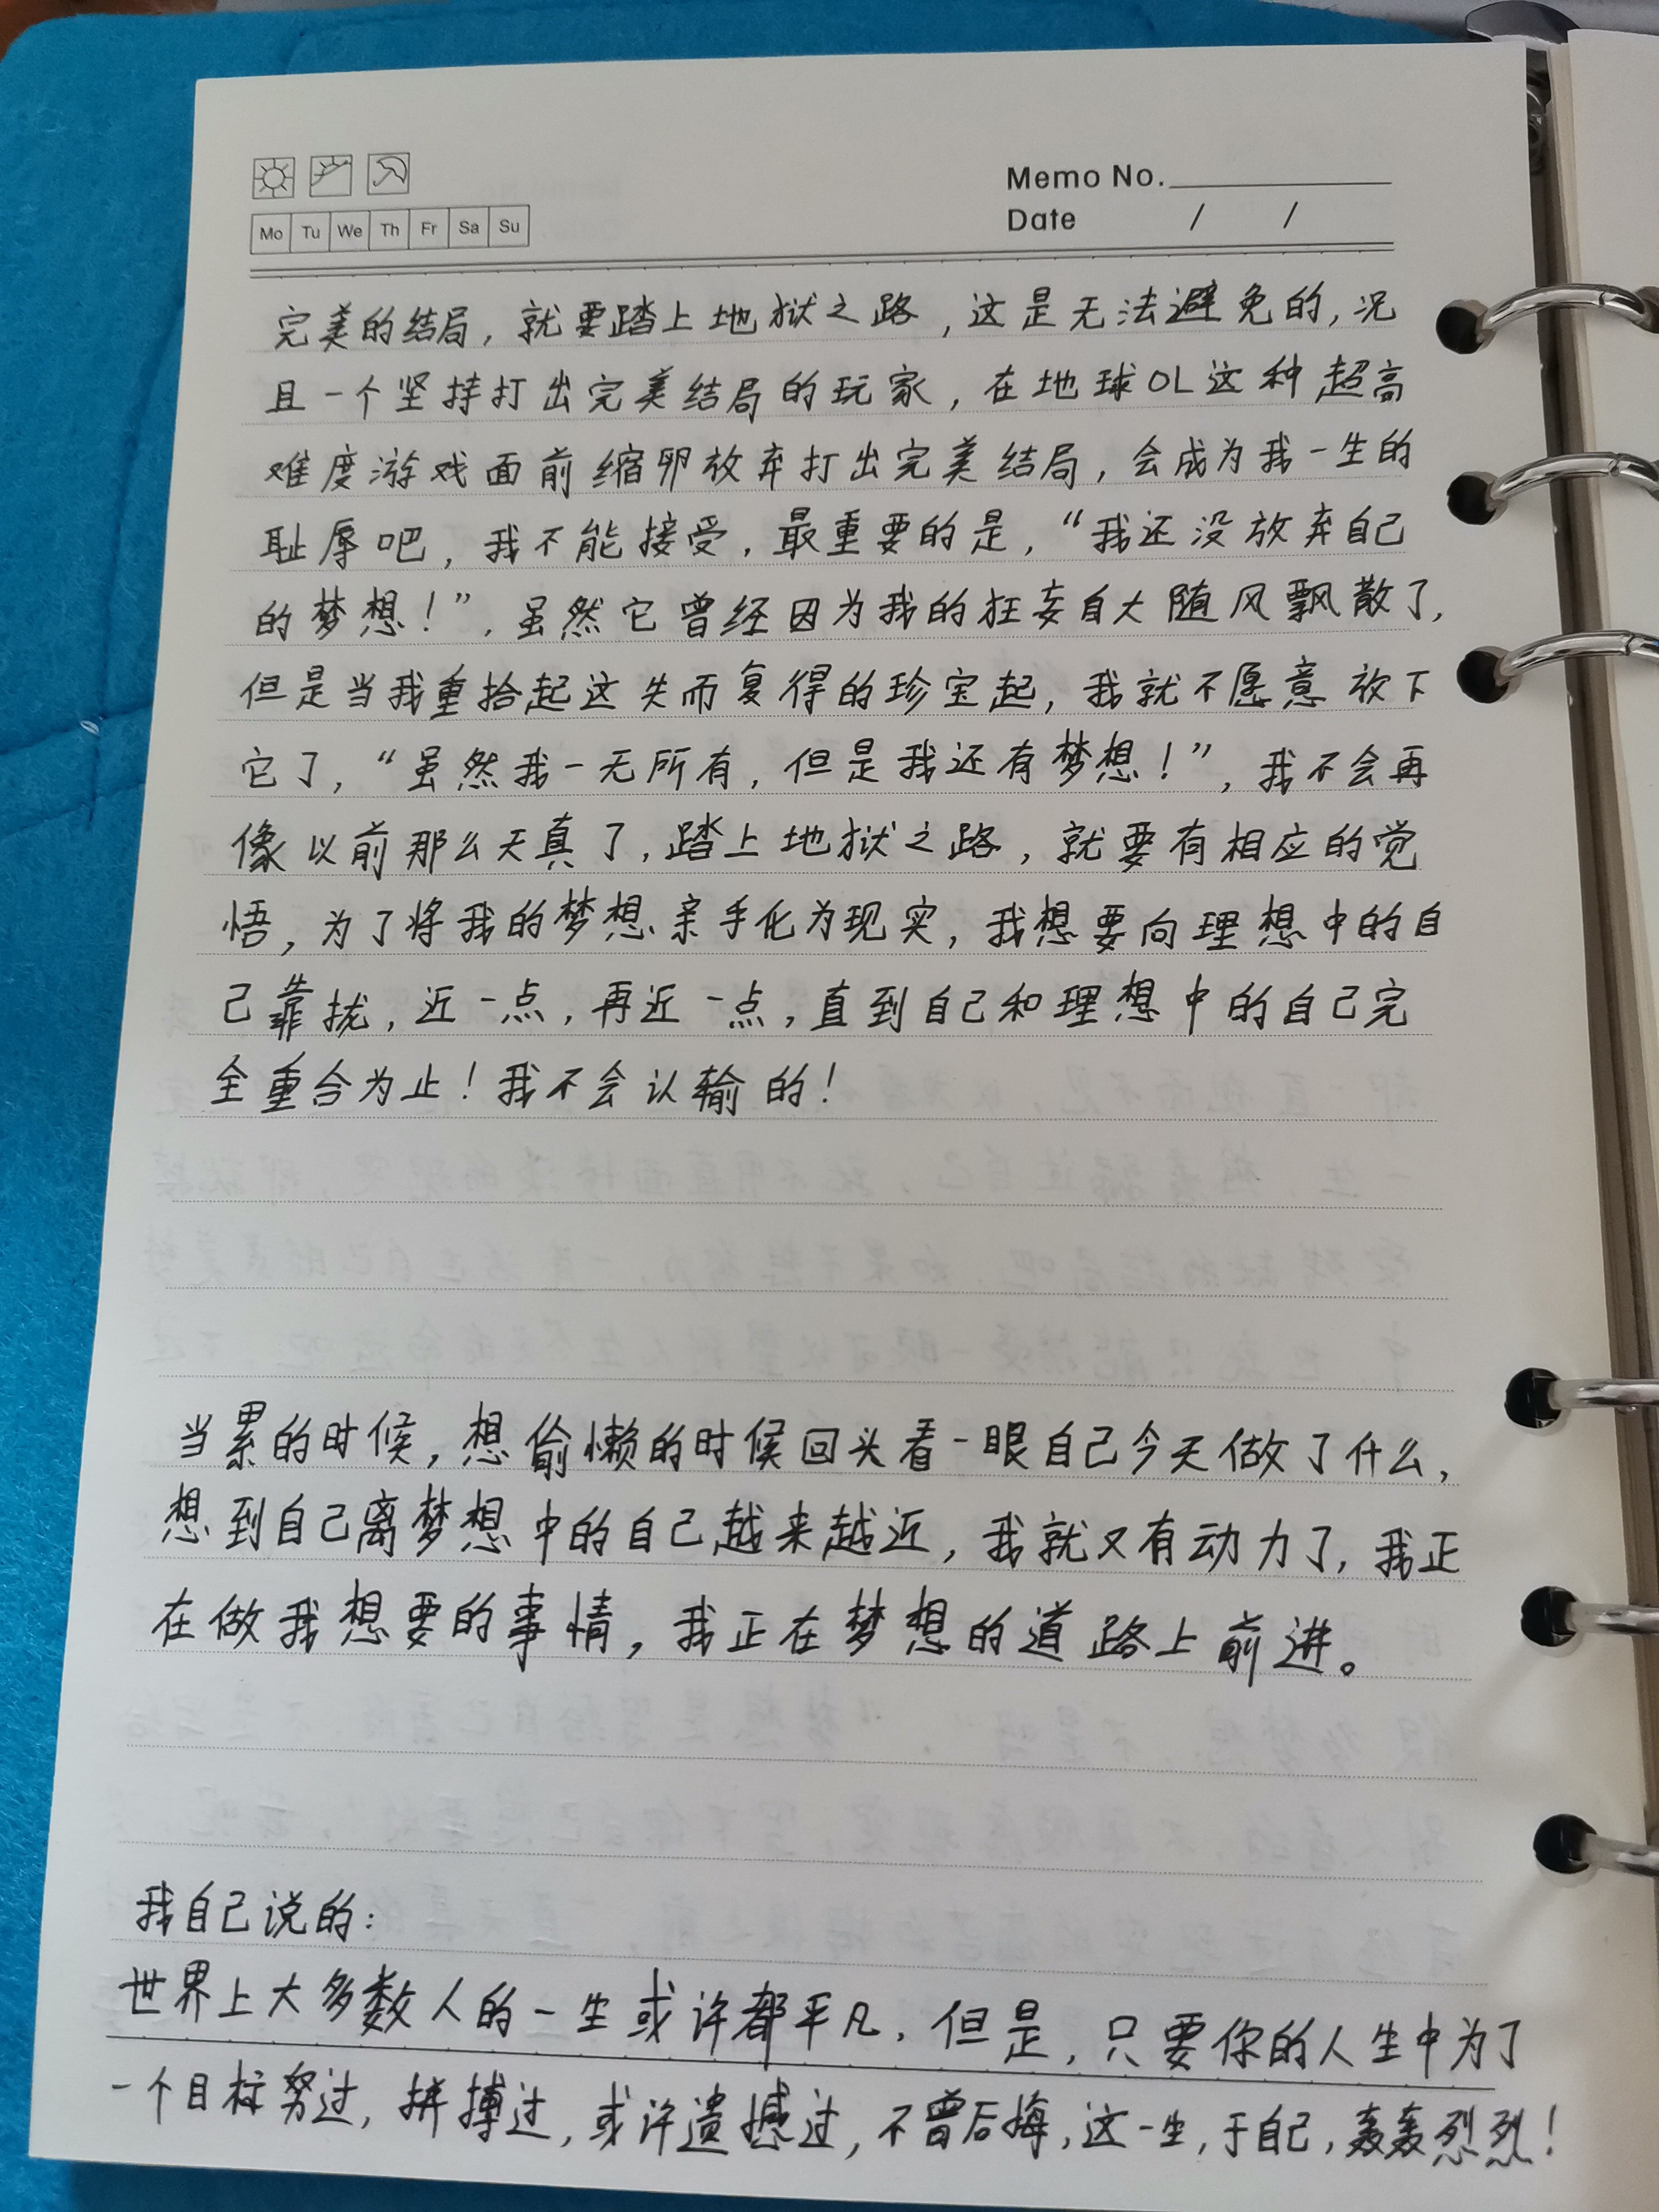 Memo No.
Mo Tu We Th Fr Sa Su
Date / /
完美的结局，就要踏上地狱之路，这是无法避免的，况
且一个坚持打出完美结局的玩家，在地球OL这种超高
难度游戏面前缩卵放弃打出完美结局，会成为我一生的
耻辱吧，我不能接受，最重要的是，“我还没放弃自己
的梦想！”，虽然它曾经因为我的狂妄自大随风飘散了，
但是当我重拾起这失而复得的珍宝起，我就不愿意放下
它了，“虽然我一无所有，但是我还有梦想！”，我不会再
像以前那么天真了，踏上地狱之路，就要有相应的觉
悟，为了将我的梦想亲手化为现实，我想要向理想中的自
己靠拢，近一点，再近一点，直到自己和理想中的自己完
全重合为止！我不会认输的！
当累的时候，想偷懒的时候回头看一眼自己今天做了什么，
想到自己离梦想中的自己越来越近，我就又有动力了，我正
在做我想要的事情，我正在梦想的道路上前进。
我自己说的：
世界上大多数人的一生或许都平凡，但是，只要你的人生中为了
一个目标努过，拼搏过，或许遗撼过，不曾后悔，这一生，于自己，轰轰烈烈！